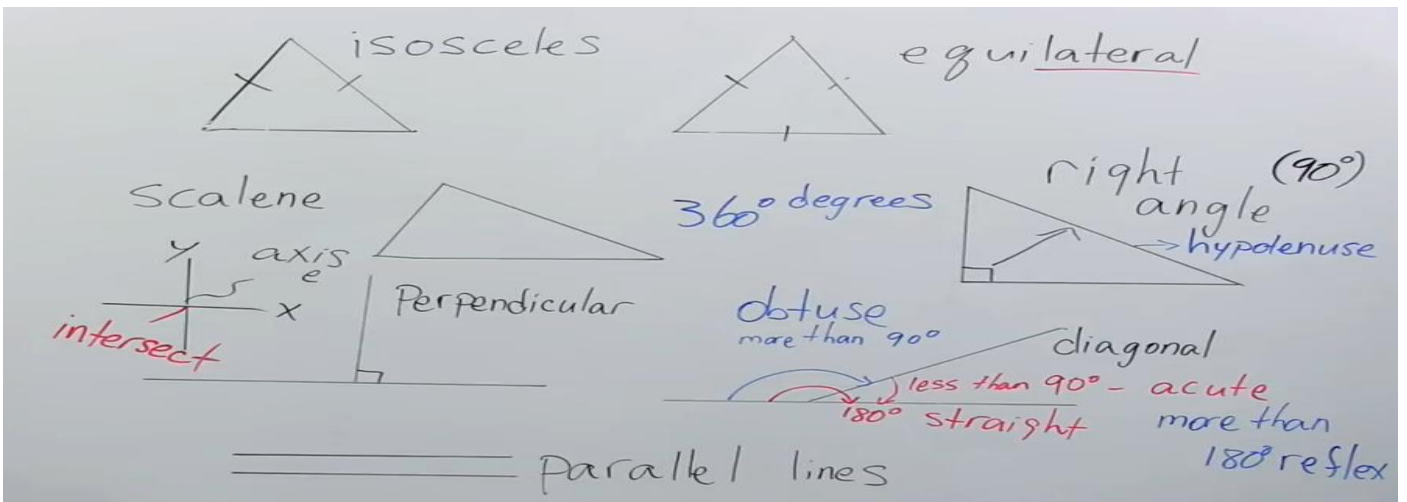 isosceles
equilateral
scalene
360° degrees
right (90°)
angle
hypotenuse
y axis
e
x
intersect
Perpendicular
obtuse
more than 90°
diagonal
less than 90° - acute
180° straight
more than
180° reflex
parallel lines